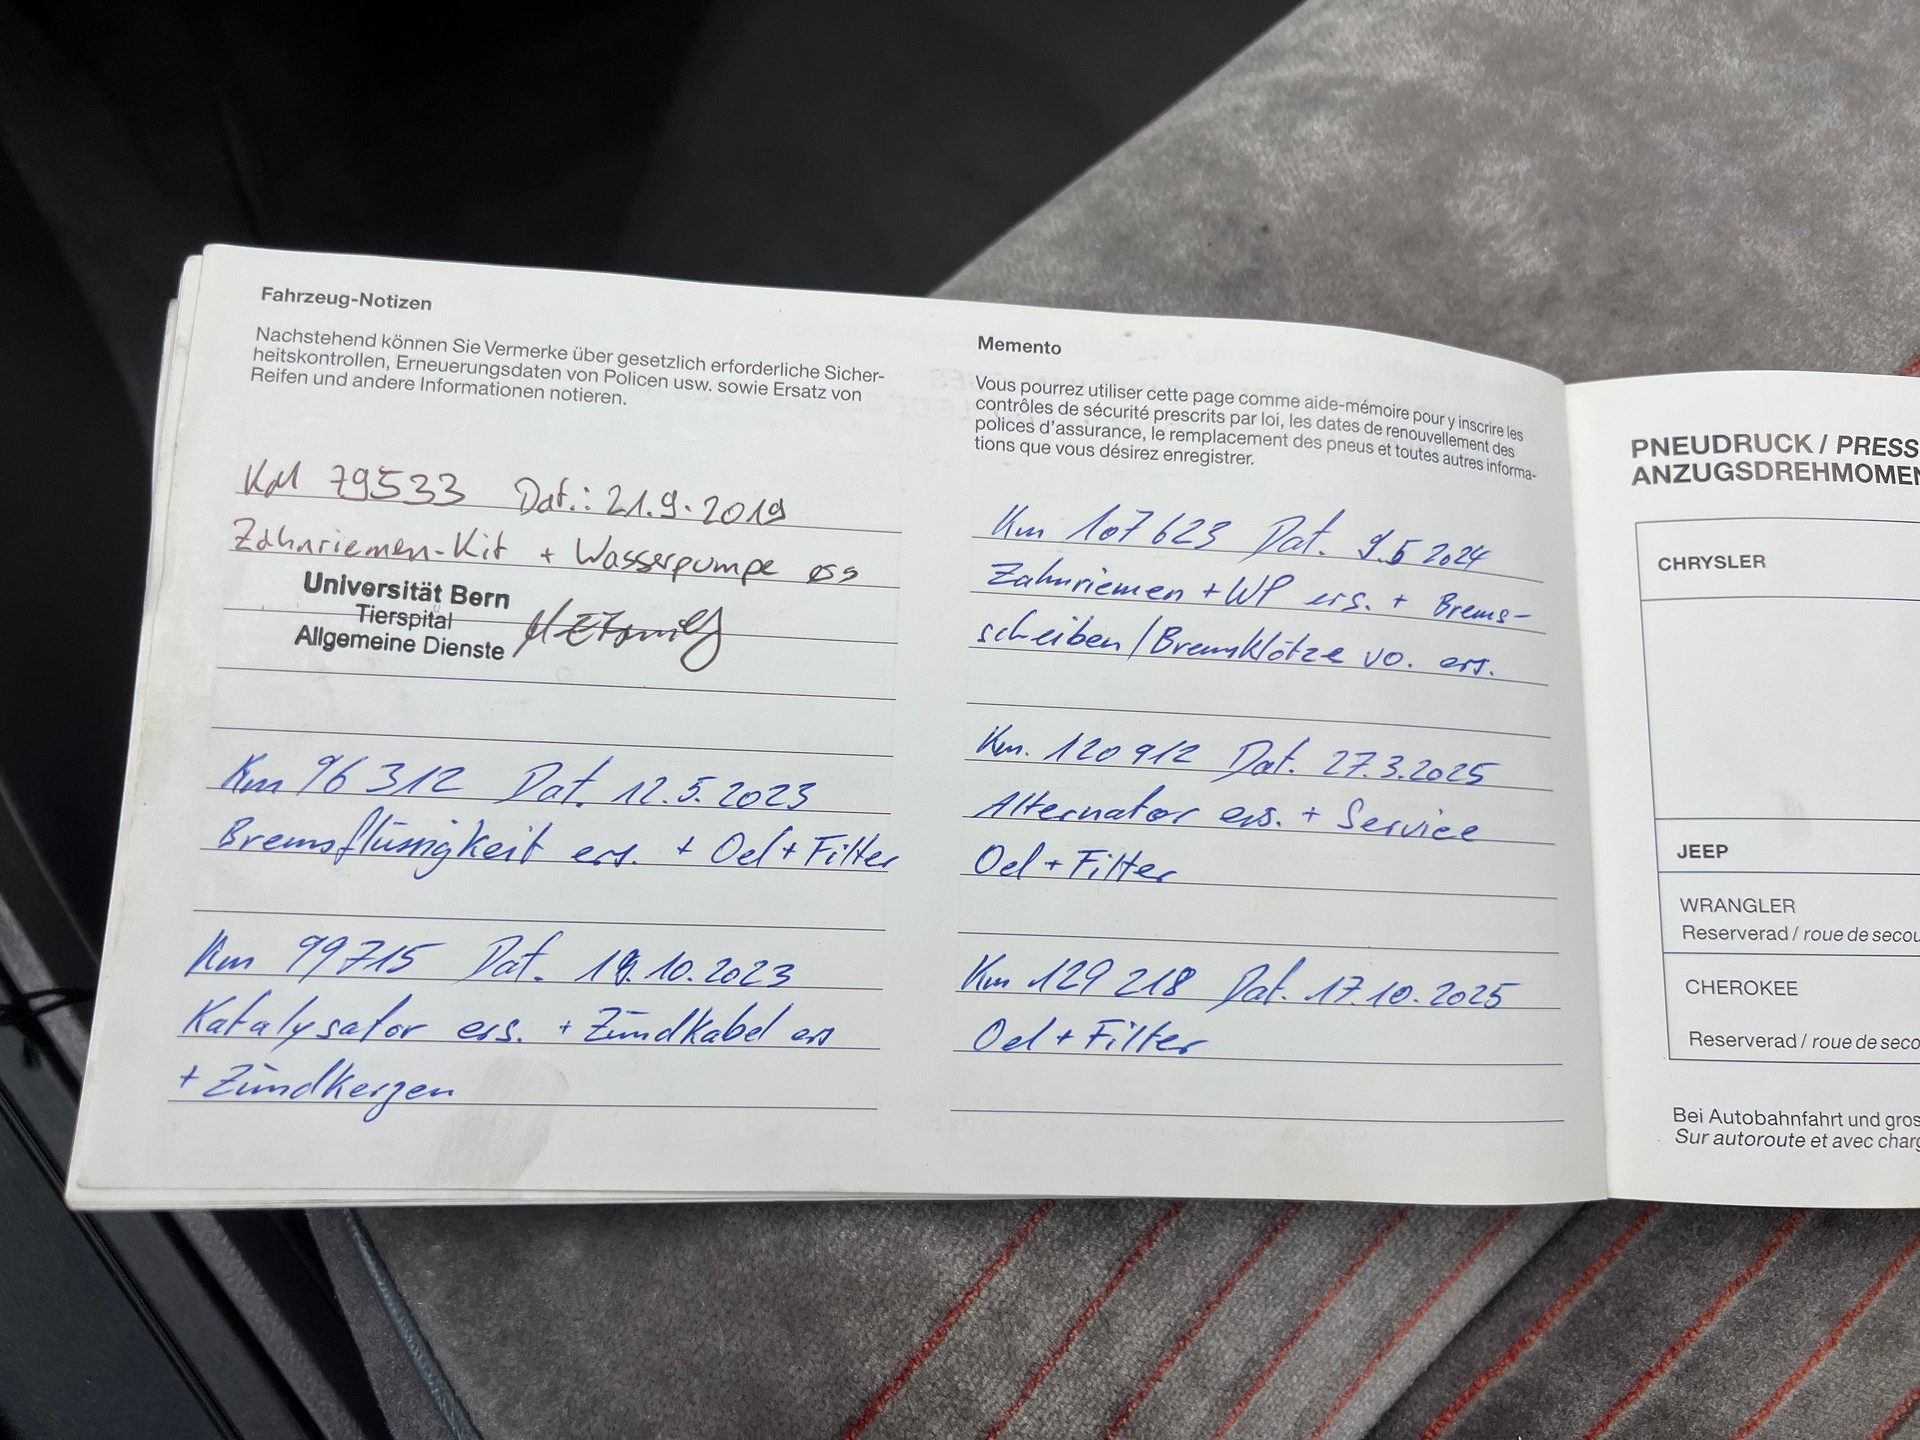 Fahrzeug-Notizen
Nachstehend können Sie Vermerke über gesetzlich erforderliche Sicher-
heitskontrollen, Erneuerungsdaten von Policen usw. sowie Ersatz von
Reifen und andere Informationen notieren.
KM 79533 Dat.: 21.9.2019
Zahnriemen-Kit + Wasserpumpe ess
Universität Bern
Tierspital
Allgemeine Dienste
Km 96312 Dat. 12.5.2023
Bremsflüssigkeit ers. + Oel + Filter
Km 99715 Dat. 19.10.2023
Katalysator ers. + Zündkabel ers
+ Zündkerzen
Memento
Vous pourrez utiliser cette page comme aide-mémoire pour y inscrire les
contrôles de sécurité prescrits par loi, les dates de renouvellement des
polices d'assurance, le remplacement des pneus et toutes autres informa-
tions que vous désirez enregistrer.
Km 107623 Dat. 9.5 2024
Zahnriemen + WP ers. + Brems-
scheiben/Bremsklötze vo. ers.
Km. 120912 Dat. 27.3.2025
Alternator ers. + Service
Oel + Filter
Km 129218 Dat. 17.10.2025
Oel + Filter
PNEUDRUCK / PRESS
ANZUGSDREHMOMEN
CHRYSLER
JEEP
WRANGLER
Reserverad / roue de secou
CHEROKEE
Reserverad / roue de seco
Bei Autobahnfahrt und gros
Sur autoroute et avec charg